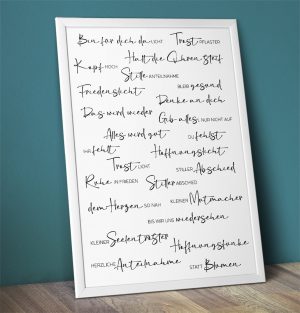 Bin für dich da LICHT Trost PFLASTER
Kopf HOCH Halt die Ohren steif
Stille ANTEILNAHME
Friedenslicht BLEIB gesund
Denke an dich
Das wird wieder Gib alles, NUR NICHT AUF
Alles wird gut DU fehlst
IHR fehlt Hoffnungslicht
Trost LICHT STILLER Abschied
Ruhe IN FRIEDEN Stiller ABSCHIED
dem Herzen SO NAH KLEINER Mutmacher
BIS WIR UNS wiedersehen
KLEINER Seelentröster
Hoffnungsfunke
HERZLICHE Anteilnahme STATT Blumen